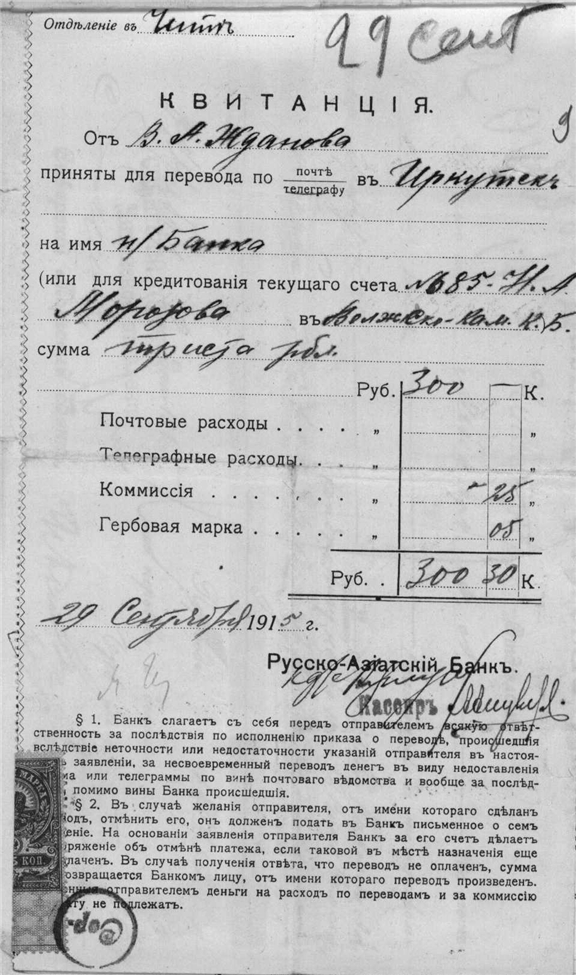 Отдѣленіе въ Читѣ
29 сент
КВИТАНЦІЯ.
9
Отъ В. А. Жданова
приняты для перевода по почтѣ/телеграфу въ Иркутскъ
на имя н/Банка
(или для кредитованія текущаго счета № 685. Н. А.
Морозова въ Волжско-Кам. К. Б.
сумма триста рбл.
Руб. 300 — К.
Почтовые расходы . . . . „ „
Телеграфные расходы. . . „ „
Коммиссія . . . . . . . „ - 25 „
Гербовая марка . . . . . „ 05 „
Руб. . 300 30 К.
29 Сентября 1915 г.
Русско-Азіатскій Банкъ.
Кассиръ
§ 1. Банкъ слагаетъ съ себя передъ отправителемъ всякую отвѣт-
ственность за послѣдствія по исполненію приказа о переводѣ, происшедшія
вслѣдствіе неточности или недостаточности указаній отправителя въ настоя-
заявленіи, за несвоевременный переводъ денегъ въ виду недоставленія
ма или телеграммы по винѣ почтоваго вѣдомства и вообще за послѣд-
помимо вины Банка происшедшія.
§ 2. Въ случаѣ желанія отправителя, отъ имени котораго сдѣланъ
одъ, отмѣнить его, онъ долженъ подать въ Банкъ письменное о семъ
еніе. На основаніи заявленія отправителя Банкъ за его счетъ дѣлаетъ
ряженіе объ отмѣнѣ платежа, если таковой въ мѣстѣ назначенія еще
плаченъ. Въ случаѣ полученія отвѣта, что переводъ не оплаченъ, сумма
озвращается Банкомъ лицу, отъ имени котораго переводъ произведенъ.
отправителемъ деньги на расходъ по переводамъ и за коммиссію
ту не подлежатъ.
КОП